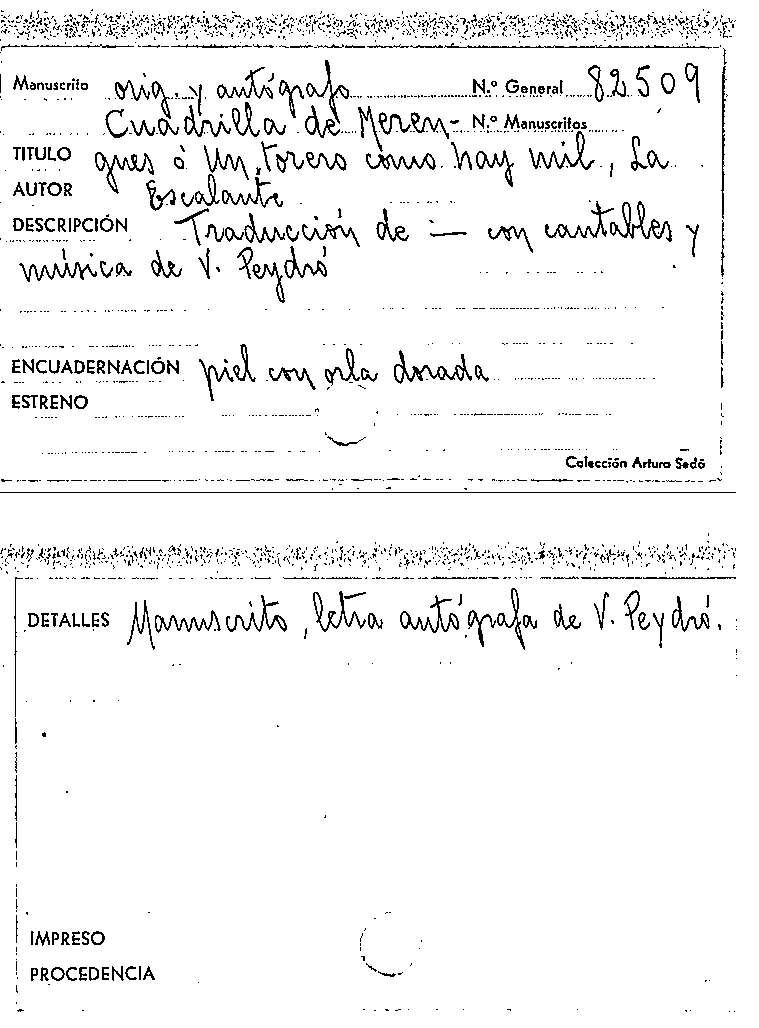 Manuscrito orig. y autógrafo N.º General 82509
Cuadrilla de Meren- N.º Manuscritos
TITULO gues ó Un torero como hay mil, La
AUTOR Escalante
DESCRIPCIÓN Traducción de — con cantables y
música de V. Peydró
ENCUADERNACIÓN piel con orla dorada
ESTRENO
Colección Arturo Sedó
DETALLES Manuscrito, letra autógrafa de V. Peydró.
IMPRESO
PROCEDENCIA